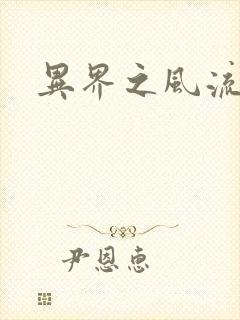 異界之風流
尹恩惠